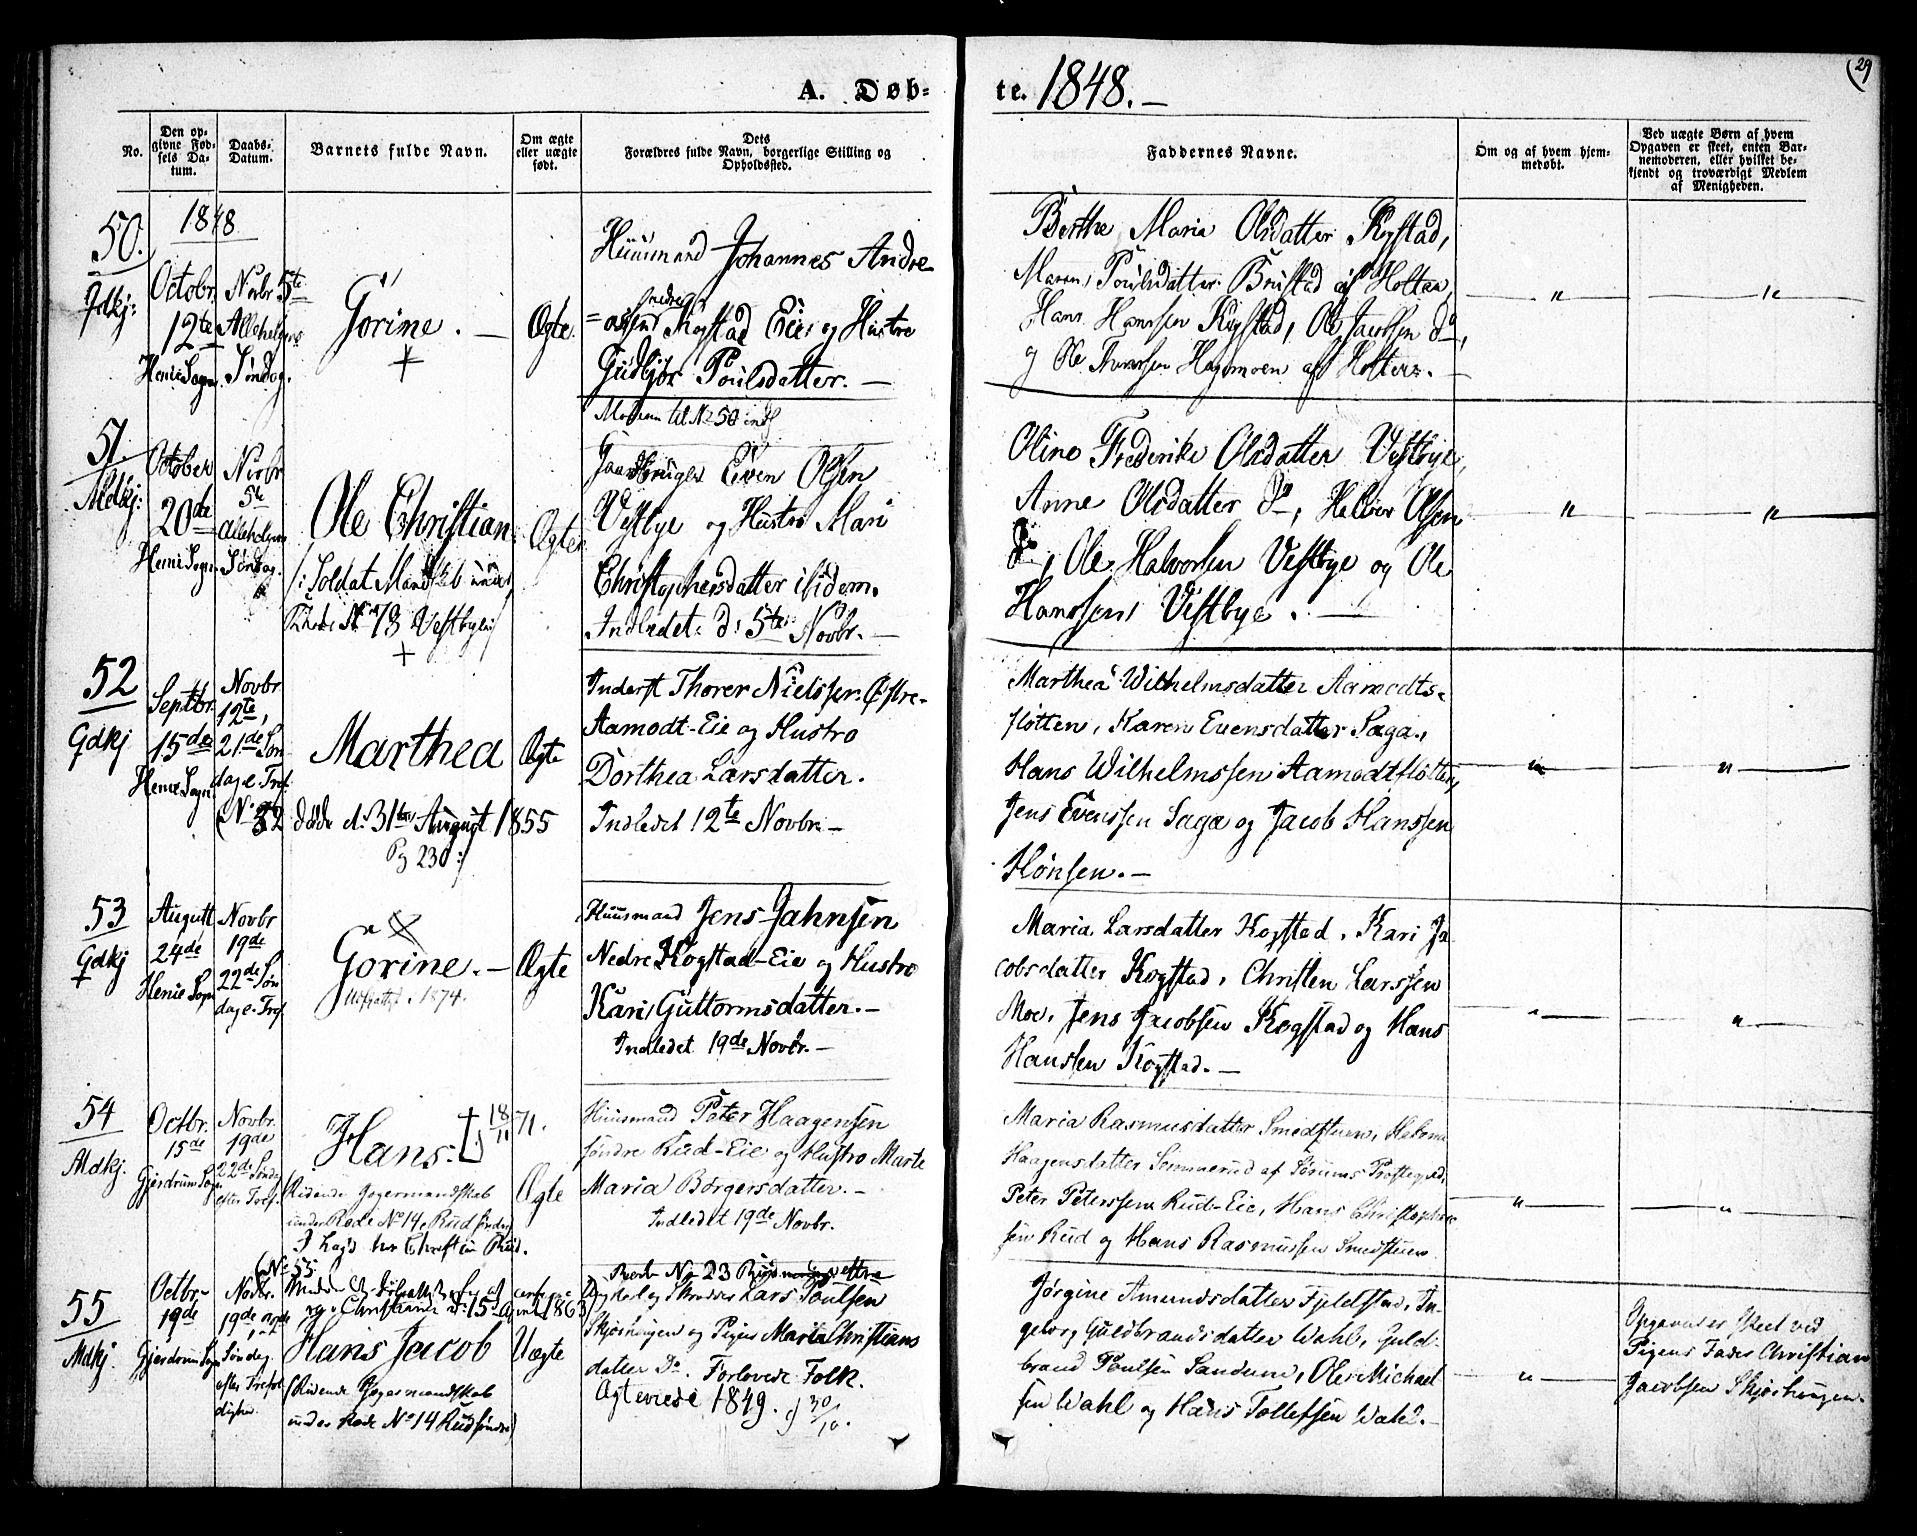 A. Døb-
te. 1848.—
29
No.
Den op-
givne Fød-
sels Da-
tum.
Daabs-
Datum.
Barnets fulde Navn.
Om ægte
eller uægte
født.
Dets
Forældres fulde Navn, borgerlige Stilling og
Opholdssted.
Faddernes Navne.
Om og af hvem hjem-
medøbt.
Ved uægte Børn af hvem
Opgaven er skeet, enten Bar-
nemoderen, eller hvilket be-
kjendt og troværdigt Medlem
af Menigheden.
50.
Gdkj:
1848
Octobr.
12te
Henie Sogn.
Novbr 5te
Allehelgens
Søndag.
Gørine. —
+
Ægte.
Huusmand Johannes Andre-
Kogstad Eie og Hustro
Gudbjør Poulsdatter. —
Moderen til No 50 indl
Berthe Maria Olsdatter Kogstad,
Maren Poulsdatter Brustad af Holtan,
Hans Hanssen Kogstad, Ole Jacobsen do,
og Ole Thorssen Hagemoen af Holtern. —
— " —
— " —
51.
Mdkj:
October
20de
Henie Sogn.
Novbr
5te
Allehelgens
Søndag.
Ole Christian
/: Soldat Mandskab under
Rode No 73 Vestbye:/
+
Ægte
Gaardbruger Even Olsen
Vestbye og Hustro Mari
Christophersdatter ibidem.
Indledet: d: 5te Novbr. —
Oline Frederike Olsdatter Vestbye,
Anne Olsdatter Do, Helvor Olsen
Do, Ole Halvorsen Vestbye og Ole
Hanssen Vestbye. —
— " —
— " —
52
Gdkj
Septbr.
15de
Henie Sogn.
Novbr
12te,
21de Søn
dag e. Tref.
Marthea
(No 32 døde d: 31te August 1855
Pg 230:/
Ægte
Inderst Thorer Nielssen Østre-
Aamodt-Eie og Hustro
Dorthea Larsdatter.
Indledet 12te Novbr —
Marthea Wilhelmsdatter Aamodts-
fløtten, Karen Evensdatter Saga,
Hans Wilhelmssen Aamodtfløtten,
Jens Evenssen Saga og Jacob Hanssen
Hønsen. —
— " —
— " —
53
Gdkj
+
Augustt
24de
Henie Sogn
Novbr
19de
22de Søn
dag e. Tref.
Gorine. —
1874.
Ægte
Huusmand Jens Jahnsen
Nedre Kogstad-Eie og Hustro
Kari Guttormsdatter. —
Indledet 19de Novbr. —
Maria Larsdatter Kogstad, Kari Ja
cobsdatter Kogstad, Christen Larssen
Moe, Jens Jacobsen Kogstad og Hans
Hanssen Kogstad. —
— " —
— " —
54
Mdkj.
Octbr.
15de
Gjerdrum Sogn
Novbr.
19de
22de Sønda
efter Tref.
Hans. † 18/11 71.
(Ridende Jægermandskab
under Rode No 14, Rud søndre)
I Lægd
Christian Rud.
Ægte
Huusmand Peter Haagensen
søndre Rud-Eie og Hustro Marte
Maria Børgersdatter. —
Indledet 19de Novbr.
Maria Rasmusdatter Smedstuen, Helene
Haagensdatter Sommerud af Sørums Præstegjeld,
Peter Peterssen Rud-Eie, Hans Christopher-
sen Rud og Hans Rasmussen Smedstuen
— " —
— " —
55
Mdkj.
Octbr.
19de
Gjerdrum Sogn
Novbr.
19de
Søndag
efter Trefol
dighed.
(No 55
Christiania d: 15 April 1863)
Hans Jacob
(Ridende Jægermandskab
under Rode No 14 Rud søndre)
Uægte
Rode No 23 Rud
Ungkarl og Skrædder Lars Poulsen
Skjøshaugen og Pigen Maria Christians
datter Do. Forlovede Folk.
Ægteviede 1849. d 30/10.
Jørgine Amundsdatter Fjeldstad, In-
geborg Guldbrandsdatter Wahl, Guld-
brand Poulsen Sandum, Ole Michael
sen Wahl og Hans Tollefsen Wahl. —
— " —
Opgaven er skeet ved
Pigens Fader Christian
Jacobsen Skjøshaugen.